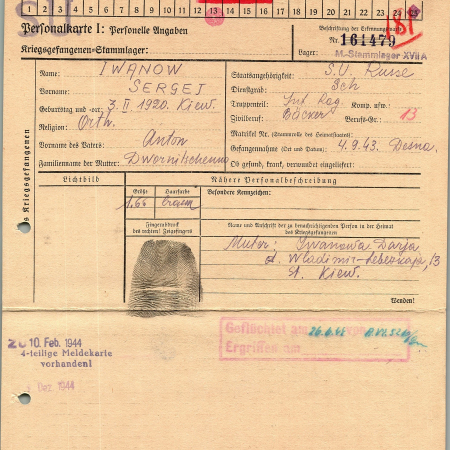 SU
1 2 3 4 5 6 7 8 9 10 11 12 13 14 15 16 17 18 19 20 21 22 23 24 25
Personalkarte I: Personelle Angaben
Beschriftung der Erkennungsmarke
Kriegsgefangenen-Stammlager:
Nr. 161479
Lager: M.-Stammlager XVII A
Des Kriegsgefangenen
Name: IWANOW
Vorname: SERGEJ
Geburtstag und -ort: 3. II. 1920. Kiew.
Religion: Orth.
Vorname des Vaters: Anton
Familienname der Mutter:
Staatsangehörigkeit: S.U. Russe
Dienstgrad: Sch
Truppenteil: Inf. Reg. Komp. usw.:
Zivilberuf: Bäcker Berufs-Gr.: 13
Matrikel Nr. (Stammrolle des Heimatstaates):
Gefangennahme (Ort und Datum): 4.9.43. Desna.
Ob gesund, krank, verwundet eingeliefert:
Lichtbild
Nähere Personalbeschreibung
Größe Haarfarbe
1,66 braun
Besondere Kennzeichen:
Fingerabdruck
des rechten! Zeigefingers
Name und Anschrift der zu benachrichtigenden Person in der Heimat
des Kriegsgefangenen
Muter: Iwanowa Darja
st. Kiew.
Wenden!
10. Feb. 1944
4-teilige Meldekarte
vorhanden!
Dez 1944
Geflüchtet am
Ergriffen am